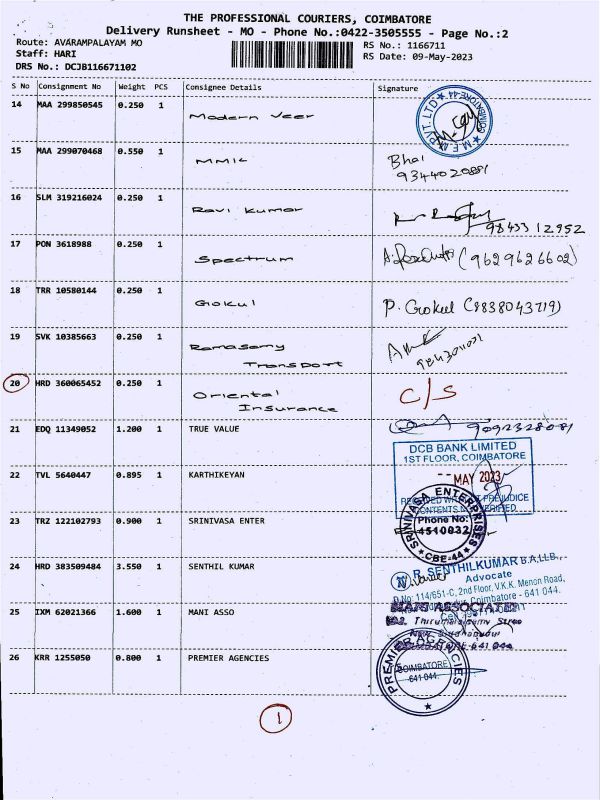 THE PROFESSIONAL COURIERS, COIMBATORE
Delivery Runsheet - MO - Phone No.:0422-3505555 - Page No.:2
Route: AVARAMPALAYAM MO
RS No.: 1166711
Staff: HARI
RS Date: 09-May-2023
DRS No.: DCJB116671102
S No Consignment No Weight PCS Consignee Details Signature
14 MAA 299850545 0.250 1 Modern Veer
15 MAA 299070468 0.550 1 MMIL Bhai
9344020881
16 SLM 319216024 0.250 1 Ravi Kumar
9843312952
17 PON 3618988 0.250 1 Spectrum (9629626602)
18 TRR 10580144 0.250 1 Gokul P. Gokul (8838043719)
19 SVK 10385663 0.250 1 Ramasamy
Transport
20 HRD 360065452 0.250 1 Oriental C/S
Insurance
21 EDQ 11349052 1.200 1 TRUE VALUE 9092328081
DCB BANK LIMITED
1ST FLOOR, COIMBATORE
22 TVL 5640447 0.895 1 KARTHIKEYAN
MAY 2023
PREJUDICE
23 TRZ 122102793 0.900 1 SRINIVASA ENTER
SRINIVASA ENTERPRISES
Phone No:
4510032
CBE-44
24 HRD 383509484 3.550 1 SENTHIL KUMAR
R. SENTHILKUMAR B.A,LLB.,
Advocate
D.No: 114/651-C, 2nd Floor, V.K.K. Menon Road,
Coimbatore - 641 044.
25 IXM 62021366 1.600 1 MANI ASSO
MANI ASSOCIATES
26 KRR 1255050 0.800 1 PREMIER AGENCIES
PREMIER AGENCIES
COIMBATORE
641 044.
1